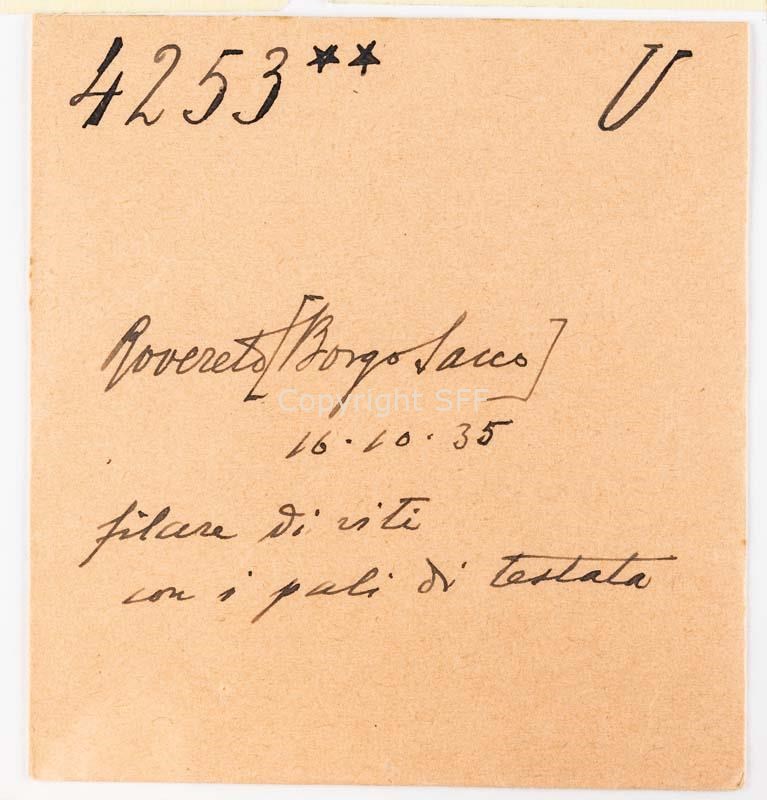 4253** U
Rovereto [Borgo Sacco]
Copyright SFF
16·10·35
filare di viti
con i pali di testata